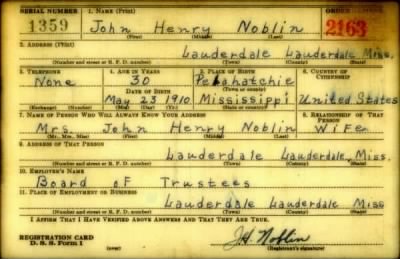 SERIAL NUMBER 1. NAME (Print) ORDER NUMBER
1359 John Henry Noblin 2163
(First) (Middle) (Last)
2. ADDRESS (Print)
Lauderdale Lauderdale Miss.
(Number and street or R. F. D. number) (Town) (County) (State)
3. TELEPHONE 4. AGE IN YEARS 5. PLACE OF BIRTH 6. COUNTRY OF CITIZENSHIP
None 30 Pelahatchie
DATE OF BIRTH (Town or county)
May 23 1910 Mississippi United States
(Exchange) (Number) (Mo.) (Day) (Yr.) (State or country)
7. NAME OF PERSON WHO WILL ALWAYS KNOW YOUR ADDRESS 8. RELATIONSHIP OF THAT PERSON
Mrs. John Henry Noblin Wife
(Mr., Mrs., Miss) (First) (Middle) (Last)
9. ADDRESS OF THAT PERSON
Lauderdale Lauderdale, Miss.
(Number and street or R. F. D. number) (Town) (County) (State)
10. EMPLOYER'S NAME
Board of Trustees
11. PLACE OF EMPLOYMENT OR BUSINESS
Lauderdale Lauderdale Miss
(Number and street or R. F. D. number) (Town) (County) (State)
I AFFIRM THAT I HAVE VERIFIED ABOVE ANSWERS AND THAT THEY ARE TRUE.
REGISTRATION CARD
D. S. S. Form 1 (over) JH Noblin
(Registrant's signature)